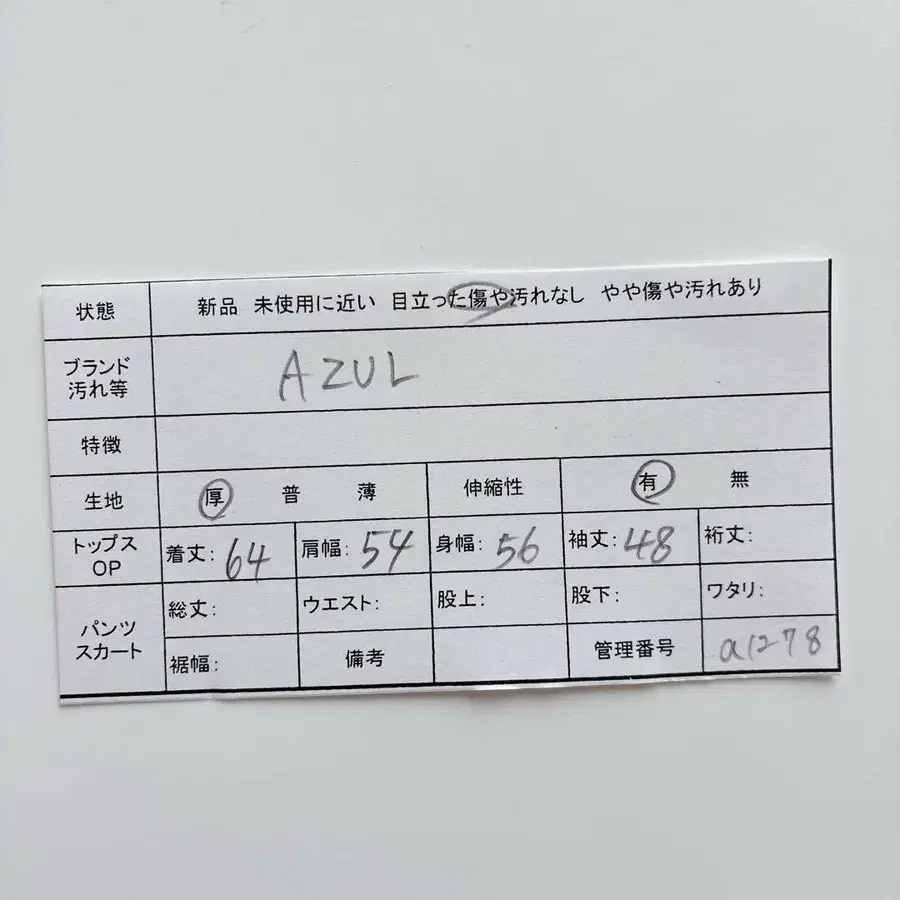 状態 新品 未使用に近い 目立った傷や汚れなし やや傷や汚れあり
ブランド
汚れ等
AZUL
特徴
生地 厚 普 薄 伸縮性 有 無
トップス
OP
着丈:64 肩幅:54 身幅:56 袖丈:48 裄丈:
パンツ
スカート
総丈: ウエスト: 股上: 股下: ワタリ:
裾幅: 備考 管理番号 a1278